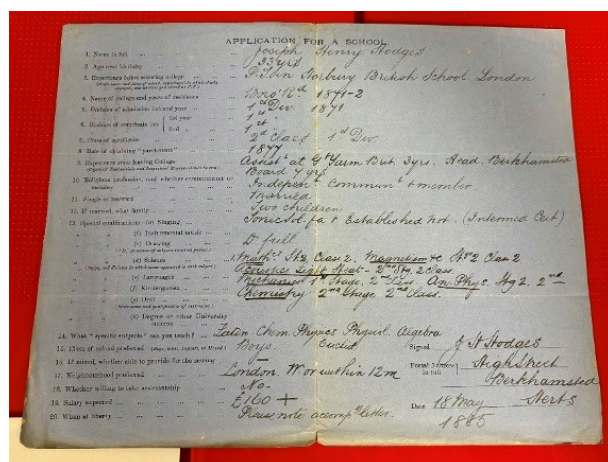 APPLICATION FOR A SCHOOL
1. Name in full Joseph Henry Hodges
2. Age next birthday 33 yrs
3. Experience before entering college P.T. in Norbury British School. London
4. Name of college and years of residence Boro' Rd. 1871-2
5. Division of admission list and year 1st Div. 1871
6. Division of certificate list 1st year 1st
2nd " 1st
7. Class of certificate 2d Class 1st Div.
8. Date of obtaining "parchment" 1877
9. Experience since leaving College Assist. at Gt Yarm Brit. 3 yrs. Head. Berkhamsted
Board 7 yrs
10. Religious profession, and whether communicant or member Independt communt & member
11. Single or married Married
12. If married, what family Two children
13. Special certificates for Singing Tonic Sol-fa & Established Not. (Intermed Cert)
(b) Instrumental music
(c) Drawing D. full
(d) Science Maths St 2, Class 2. Magnetism &c St 2 Class 2
Acoustics Light Heat - 2nd Stg. 2 Class.
(e) Languages Mechanics 1st Stage. 2nd Class An. Phys. Stg 2. 2nd
(f) Kindergarten Chemistry 2nd Stage. 2nd Class.
(g) Drill
(h) Degree or other University success
14. What "specific subjects" can you teach? Latin Chem. Physics Physiol. Algebra
Euclid
15. Class of school preferred Boys.
16. If mixed, whether able to provide for the sewing —
17. Neighbourhood preferred London. W or within 12 m
18. Whether willing to take assistantship No.
19. Salary expected £160 +
20. When at liberty Please note accompg letter.
Signed J H Hodges
Postal Address in full High Street
Berkhamsted
Herts
Date 18 May
1885